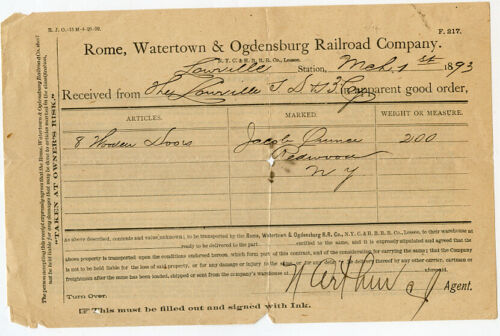 R. J. O.
F. 217.
Rome, Watertown & Ogdensburg Railroad Company.
N. Y. C. & H. R. R. R. Co., Lessee.
Lowville Station, Mch 1st 1893
Received from The Lowville in apparent good order,
ARTICLES. MARKED. WEIGHT OR MEASURE.
8 Wooden Doors Jacob 200
Redwood
N Y
as above described, contents and value unknown, to be transported by the Rome, Watertown & Ogdensburg R.R. Co., N.Y. C. & H. R. R. R. Co., Lessee, to their warehouse at
ready to be delivered to the part entitled to the same, and it is expressly stipulated and agreed that the
above property is transported upon the conditions endorsed hereon, which form part of this contract, and of the consideration for carrying the same; that the Company
is not to be held liable for the loss of said property, or for any damage or injury to the same, or for delivery thereof by any other carrier, cartman or
freightman after the same has been loaded, shipped or sent from the company's warehouse at aforesaid.
Agent.
Turn Over.
☞ This must be filled out and signed with Ink.
The person accepting this receipt expressly agrees that the Rome, Watertown & Ogdensburg Railroad Co. shall
not be held liable for any damages that may be done to articles marked in the classification,
"TAKEN AT OWNER'S RISK."